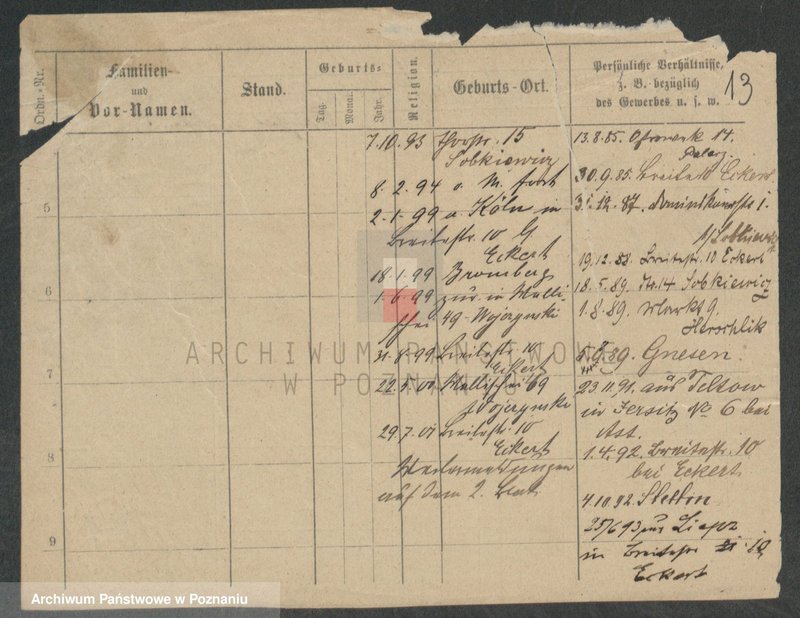 13
Ordn.-Nr.
Familien-
und
Vor-Namen.
Stand.
Geburts-
Tag.
Monat.
Jahr.
Religion.
Geburts-Ort.
Persönliche Verhältnisse,
z. B. bezüglich
des Gewerbes u. s. w.
5
6
7
8
9
7.10.93 15
Sobkiewicz
8.2.94 a. M. fort
2.1.99 a. Köln in
Breitestr. 10
Eckert
18.1.99 Bromberg
1.6.99 zur in Walli
schei 49 Wojczynski
31.8.99 Breitestr. 10
Eckert
22.5.00 Wallischei 69
Wojczynski
29.7.01 Breitestr. 10
Eckert
auf dem 2. Blatt
13.8.85. 14.
30.9.85. Breitestr. Eckert
31.12.87. Dominikanerstr. 1.
b/ Sobkiewicz
19.12.88. Breitestr. 10 Eckert
18.5.89. 14 Sobkiewicz
1.8.89. Markt 9.
Herschlik
89. Gnesen.
23.11.91. aus Teltow
in Jersitz No 6 bei
Ast.
1.4.92. Breitestr. 10
bei Eckert
4.10.92. Stettin
25/6 93 zur
in Breitestr. 10
Eckert
ARCHIWUM PAŃSTWOWE
W POZNANIU
Archiwum Państwowe w Poznaniu